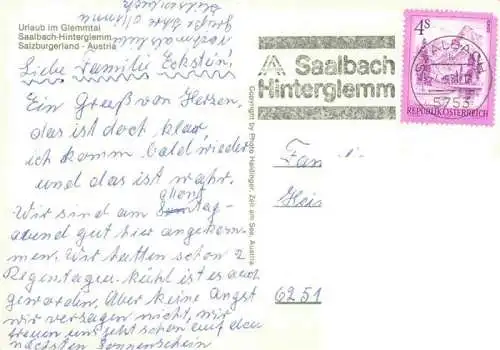 Urlaub im Glemmtal
Saalbach-Hinterglemm
Salzburgerland - Austria
Liebe Familie Eckstein!
Ein Gruß von Herzen,
das ist doch klar
ich komm bald wieder
und das ist wahr.
Wir sind am
tag-
abend gut hier angekom-
men. Wir hatten schon 2
Regentagen. kühl ist es auch
geworden. Aber keine Angst
wir verzagen nicht, wir
freuen uns jetzt schon auf den
nächsten Sonnenschein
Copyright by Photo Haidinger, Zell am See, Austria
Saalbach
Hinterglemm
4S
REPUBLIK ÖSTERREICH
SAALBACH
5753
Fam
Heis
6251